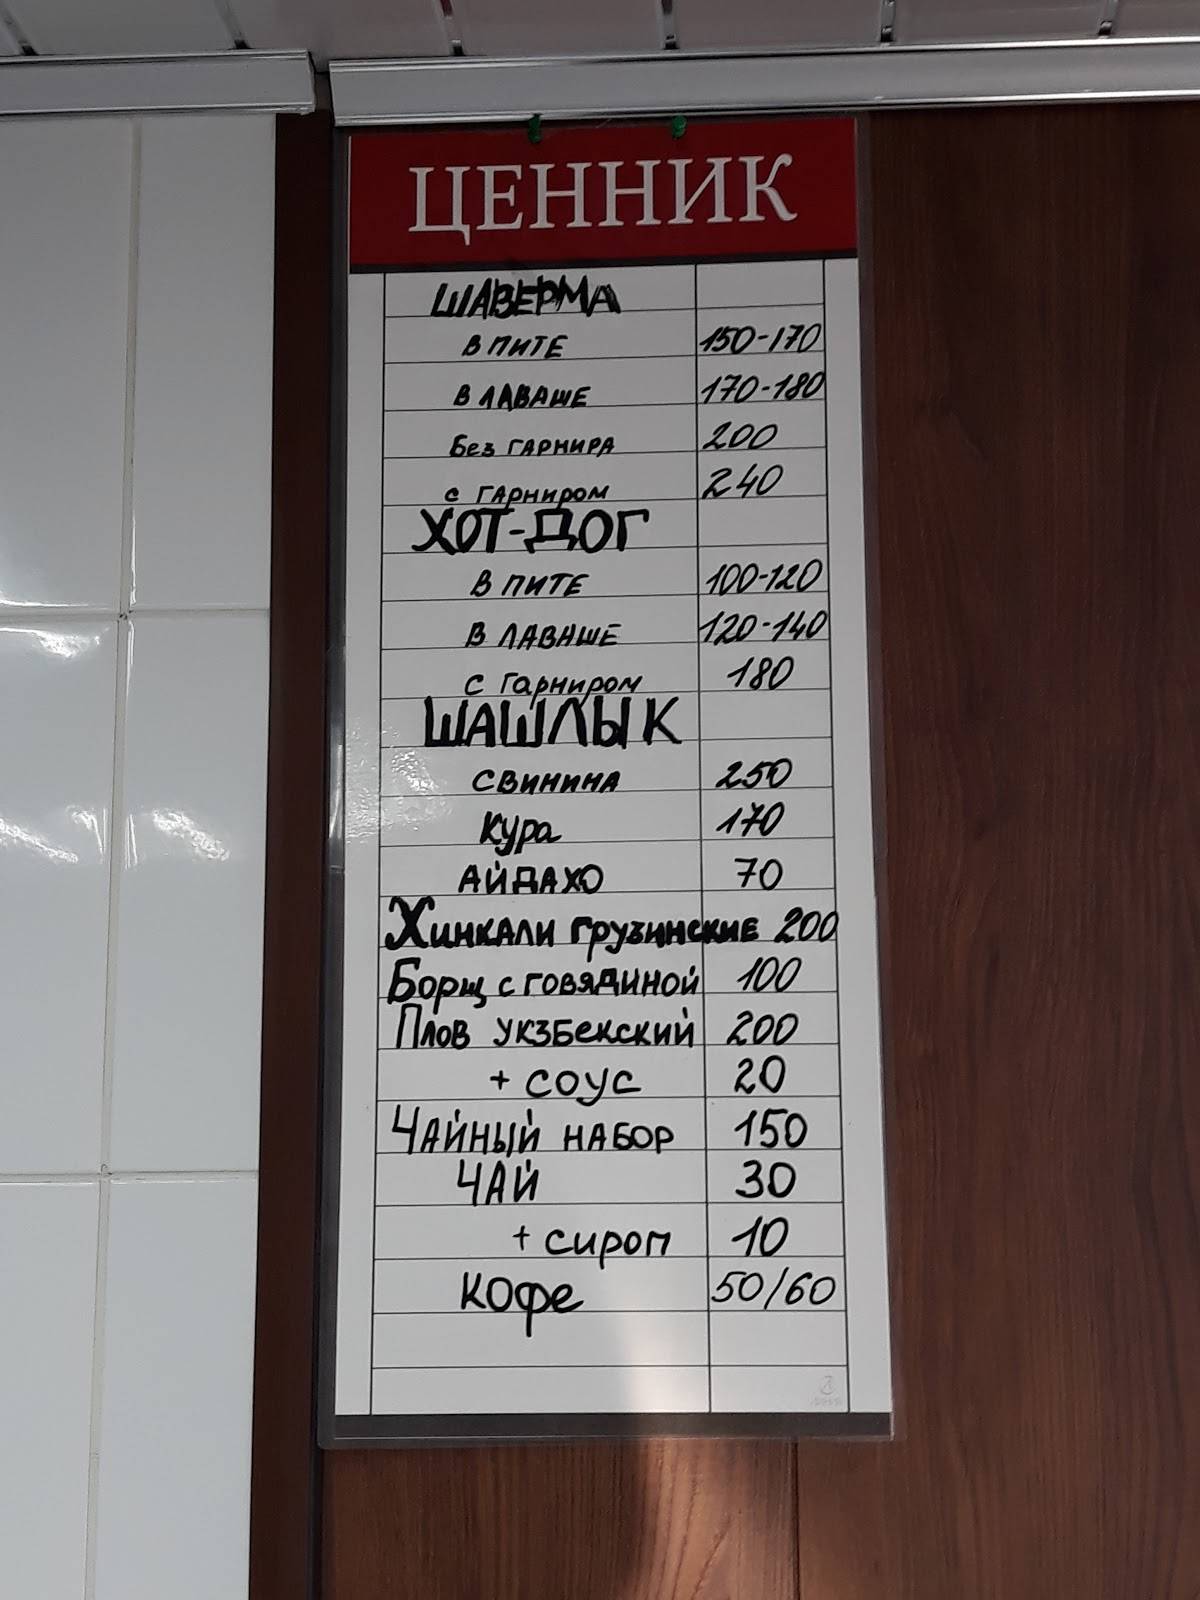 ЦЕННИК
ШАВЕРМА
В ПИТЕ 150-170
В ЛАВАШЕ 170-180
Без ГАРНИРА 200
С ГАРНИРОМ 240
ХОТ-ДОГ
В ПИТЕ 100-120
В ЛАВАШЕ 120-140
С Гарниром 180
ШАШЛЫК
СВИНИНА 250
Кура 170
АЙДАХО 70
Хинкали грузинские 200
Борщ с говядиной 100
Плов укзбекский 200
+ соус 20
Чайный набор 150
ЧАЙ 30
+ сироп 10
Кофе 50/60